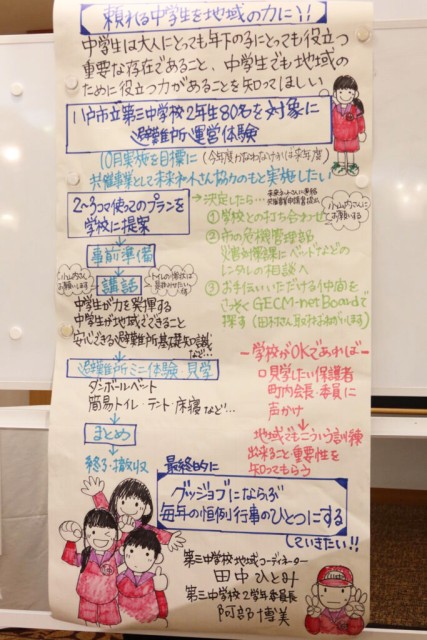 頼れる中学生を地域の力に!!
中学生は大人にとっても年下の子にとっても役立つ
重要な存在であること、中学生でも地域の
ために役立つ力があることを知ってほしい
八戸市立第三中学校2年生80名を対象に
避難所運営体験
10月実施を目標に(今年度かなわなければ来年度)
共催事業として未来ネットさん協力のもと実施したい
2~3コマ使ってのプランを
学校に提案
→決定したら…
①学校との打ち合わせ
小山内さんに
お願いする
事前準備
②市の危機管理部
災害対策課にベッドなどの
レンタルの相談へ
小山内さん
お願いします
講話
③お手伝いいただける仲間を
GECM-net Boardで
探す(田村さん取りまとめお願いします)
中学生が力を発揮する
中学生が地域でできること
安心できる避難所基礎知識
など…
避難所ミニ体験・見学
ダンボールベット
簡易トイレ・テント・床寝など…
-学校がOKであれば-
見学したい保護者
町内会長・委員に
声かけ
→地域でもこういう訓練
出来ること・重要性を
知ってもらう
まとめ
終了・撤収
最終的に
グッジョブにならぶ
毎年の恒例行事のひとつにする
していきたい!!
第三中学校地域コーディネーター
田中ひとみ
第三中学校2学年委員長
阿部博美